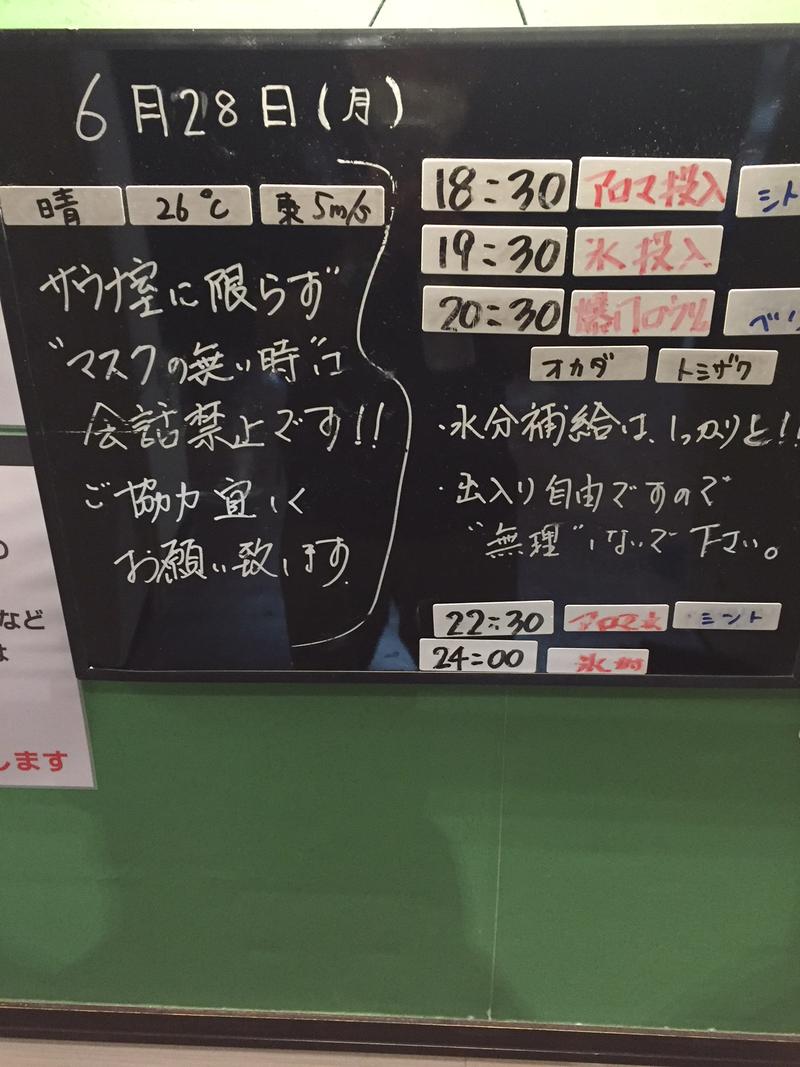 6月28日(月)
晴 26℃ 東5m/s
サウナ室に限らず
"マスクの無い時"は
会話禁止です!!
ご協力宜しく
お願い致します。
18:30 アロマ投入 シト
19:30 氷投入
20:30 爆風ロウリュ ベリ
オカダ トミザワ
・水分補給は、しっかりと!!
・出入り自由ですので
"無理"しないで下さい。
22:30 アロマ水 ミント
24:00 氷
など
は
します